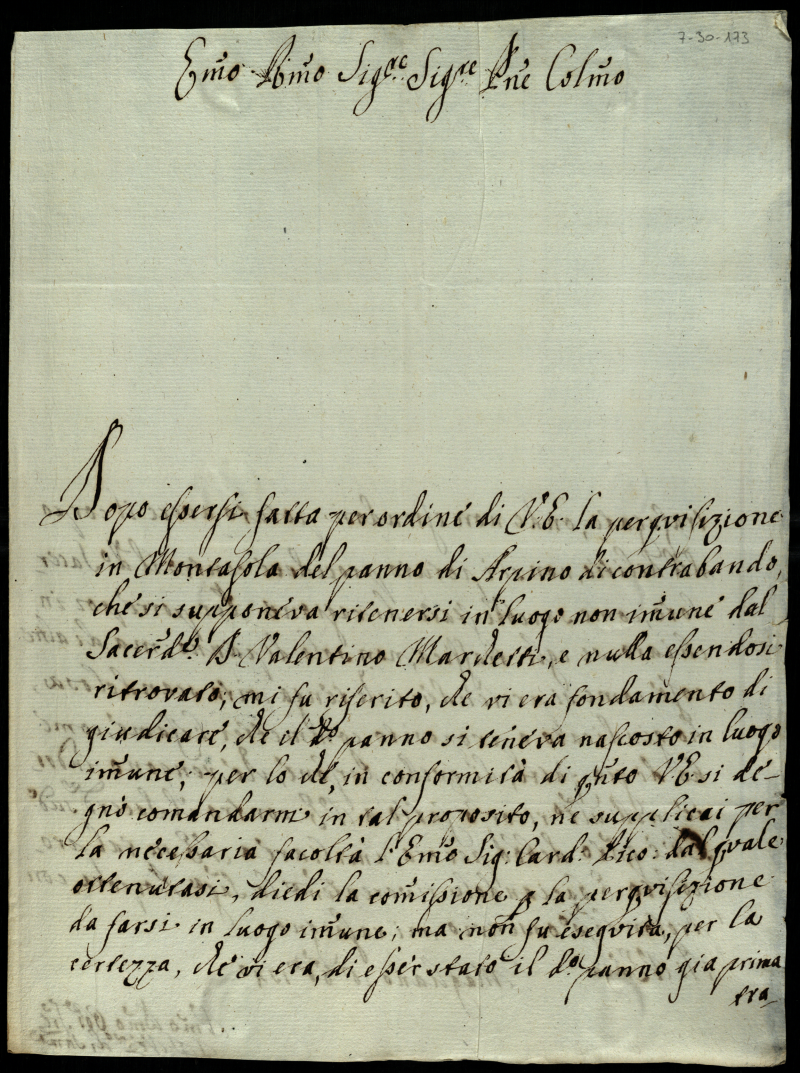 7-30-173
Em̃o Rm̃o Sig.re Sig.re Pne Colm̃o
Dopo essersi fatta per ordine di V.E. la perquisizione
in Montasola del panno di Arpino di contrabando,
che si supponeva ritenersi in luogo non im̃une dal
Sacerd.te D. Valentino Marchetti, e nulla essendosi
ritrovato; mi fu riferito, che vi era fondamento di
giudicare, che el d.o panno si teneva nascosto in luogo
im̃une; per lo che, in conformità di q̃nto V.E. si de-
gnò comandarmi in tal proposito, ne supplicai per
la necessaria facoltà l'Em̃o Sig: Card: Pico: dal quale
ottenutasi, diedi la com̃issione p la perquisizione
da farsi in luogo im̃une; ma non fu eseguita, per la
certezza, che vi era, di esser stato il d.o panno già prima
tra-